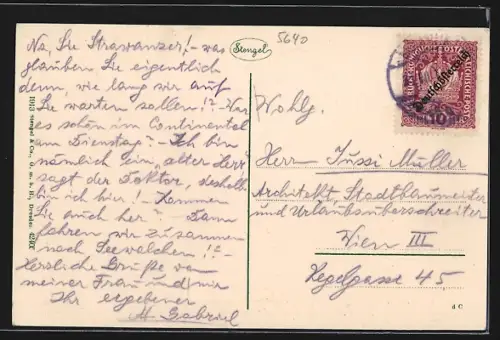 Na, Sie Strawanzer! - was
glauben Sie eigentlich
denn, wie lang wir auf
Sie warten sollen!? War
es schön im Continental
am Dienstag? - Ich bin
nämlich "ein alter Herr"
sagt der Doktor, deshalb
bin ich hier! - Kommen
Sie auch her? - Dann
fahren wir zusammen
nach Seewalchen!? -
Herzliche Grüße von
meiner Frau und mir
Ihr ergebener
M. Gabriel
Stengel
5640
1913 Stengel & Co., G. m. b. H., Dresden
DEUTSCHÖSTERREICHISCHE POST
Deutschösterreich
10
Wohlg.
Herrn Jussi Müller
Architekt, Stadtbaumeister
und Urlaubsüberschreiter
Wien III
Kegelgasse 45